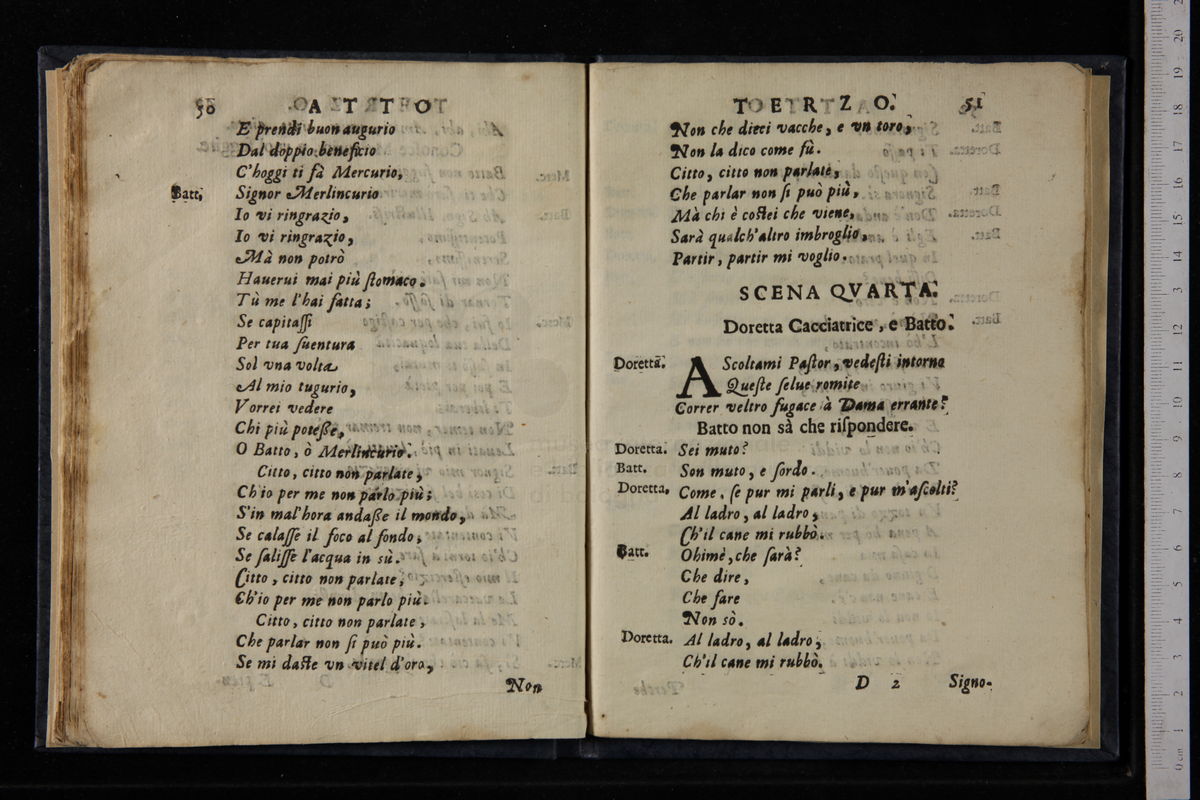 50 ATTO
E prendi buon augurio
Dal doppio beneficio
C'hoggi ti fà Mercurio,
Batt. Signor Merlincurio
Io vi ringrazio,
Io vi ringrazio,
Mà non potrò
Hauerui mai più ſtomaco.
Tù me l'hai fatta;
Se capitaſſi
Per tua ſuentura
Sol vna volta
Al mio tugurio,
Vorrei vedere
Chi più poteße,
O Batto, ò Merlincurio.
Citto, citto non parlate,
Ch'io per me non parlo più;
S'in mal'hora andaße il mondo,
Se calaſſe il foco al fondo,
Se ſaliſſe l'acqua in sù.
Citto, citto non parlate,
Ch'io per me non parlo più.
Citto, citto non parlate,
Che parlar non ſi può più.
Se mi daſte vn vitel d'oro,
Non
TERZO. 51
Non che dieci vacche, e vn toro,
Non la dico come fù.
Citto, citto non parlate,
Che parlar non ſi può più.
Mà chi è coſtei che viene,
Sarà qualch'altro imbroglio,
Partir, partir mi voglio.
SCENA QVARTA.
Doretta Cacciatrice, e Batto.
Doretta. AScoltami Paſtor, vedeſti intorno
Queſte ſelue romite
Correr veltro fugace à Dama errante?
Batto non sà che riſpondere.
Doretta. Sei muto?
Batt. Son muto, e ſordo.
Doretta. Come, ſe pur mi parli, e pur m'aſcolti?
Al ladro, al ladro,
Ch'il cane mi rubbò.
Batt. Ohimè, che ſarà?
Che dire,
Che fare
Non sò.
Doretta. Al ladro, al ladro,
Ch'il cane mi rubbò.
D 2 Signo-